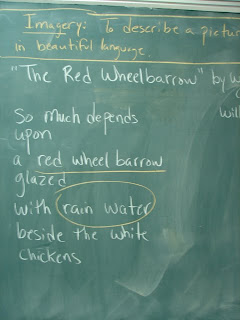 Imagery: To describe a pictur
in beautiful language.
"The Red Wheelbarrow" by W
Will
So much depends
upon
a red wheel barrow
glazed
with rain water
beside the white
chickens